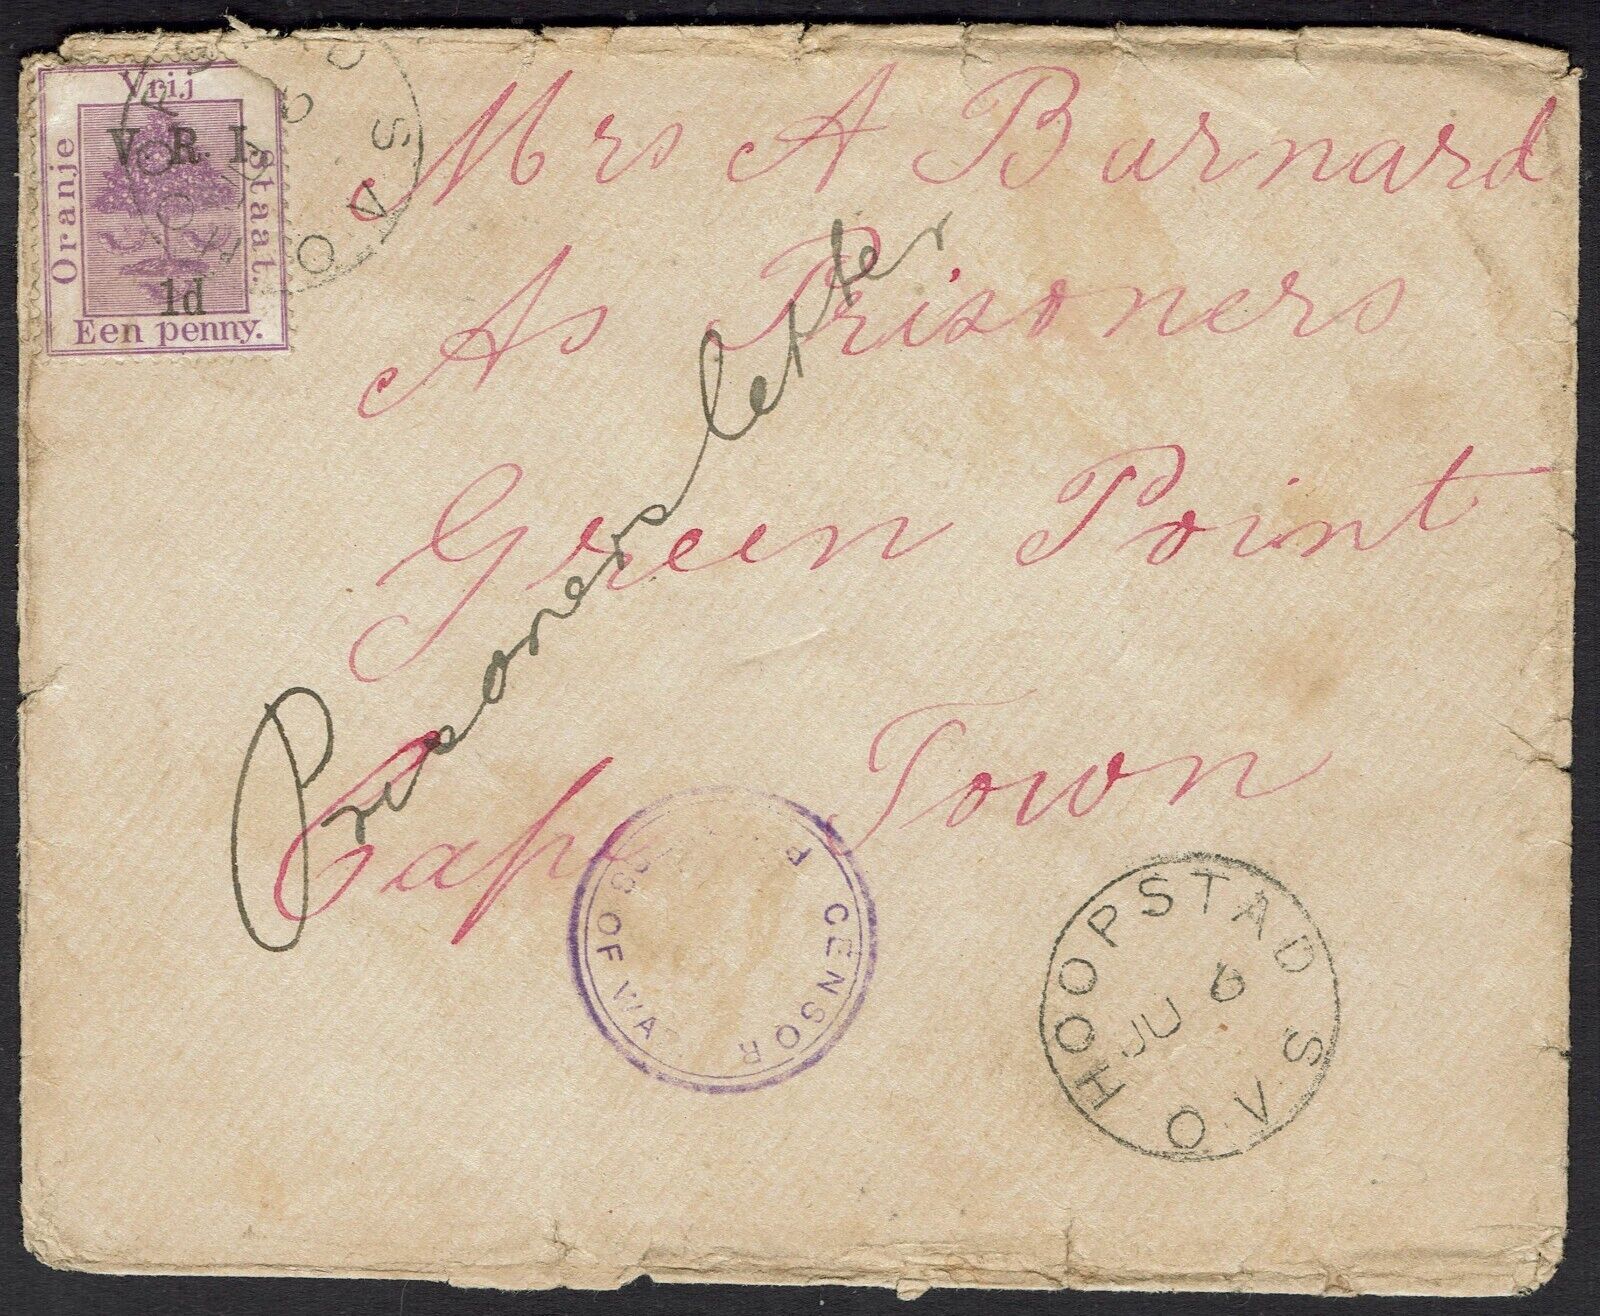 Vrij
Oranje
Staat.
V. R. I.
1d
Een penny.
O V S
Mrs A Barnard
As Prisoners
Green Point
Cape Town
Prisoners letter
OF WAR
CENSOR
HOOPSTAD
JU 6
O V S